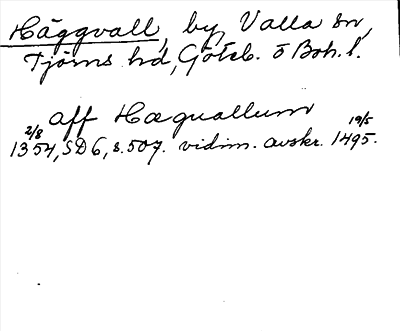 Häggvall, by, Valla sn,
Tjörns hd, Göteb. o Boh. l.
aff Hæguallum
2/8 1354, SD 6, s. 507. vidim. avskr. 19/5 1495.